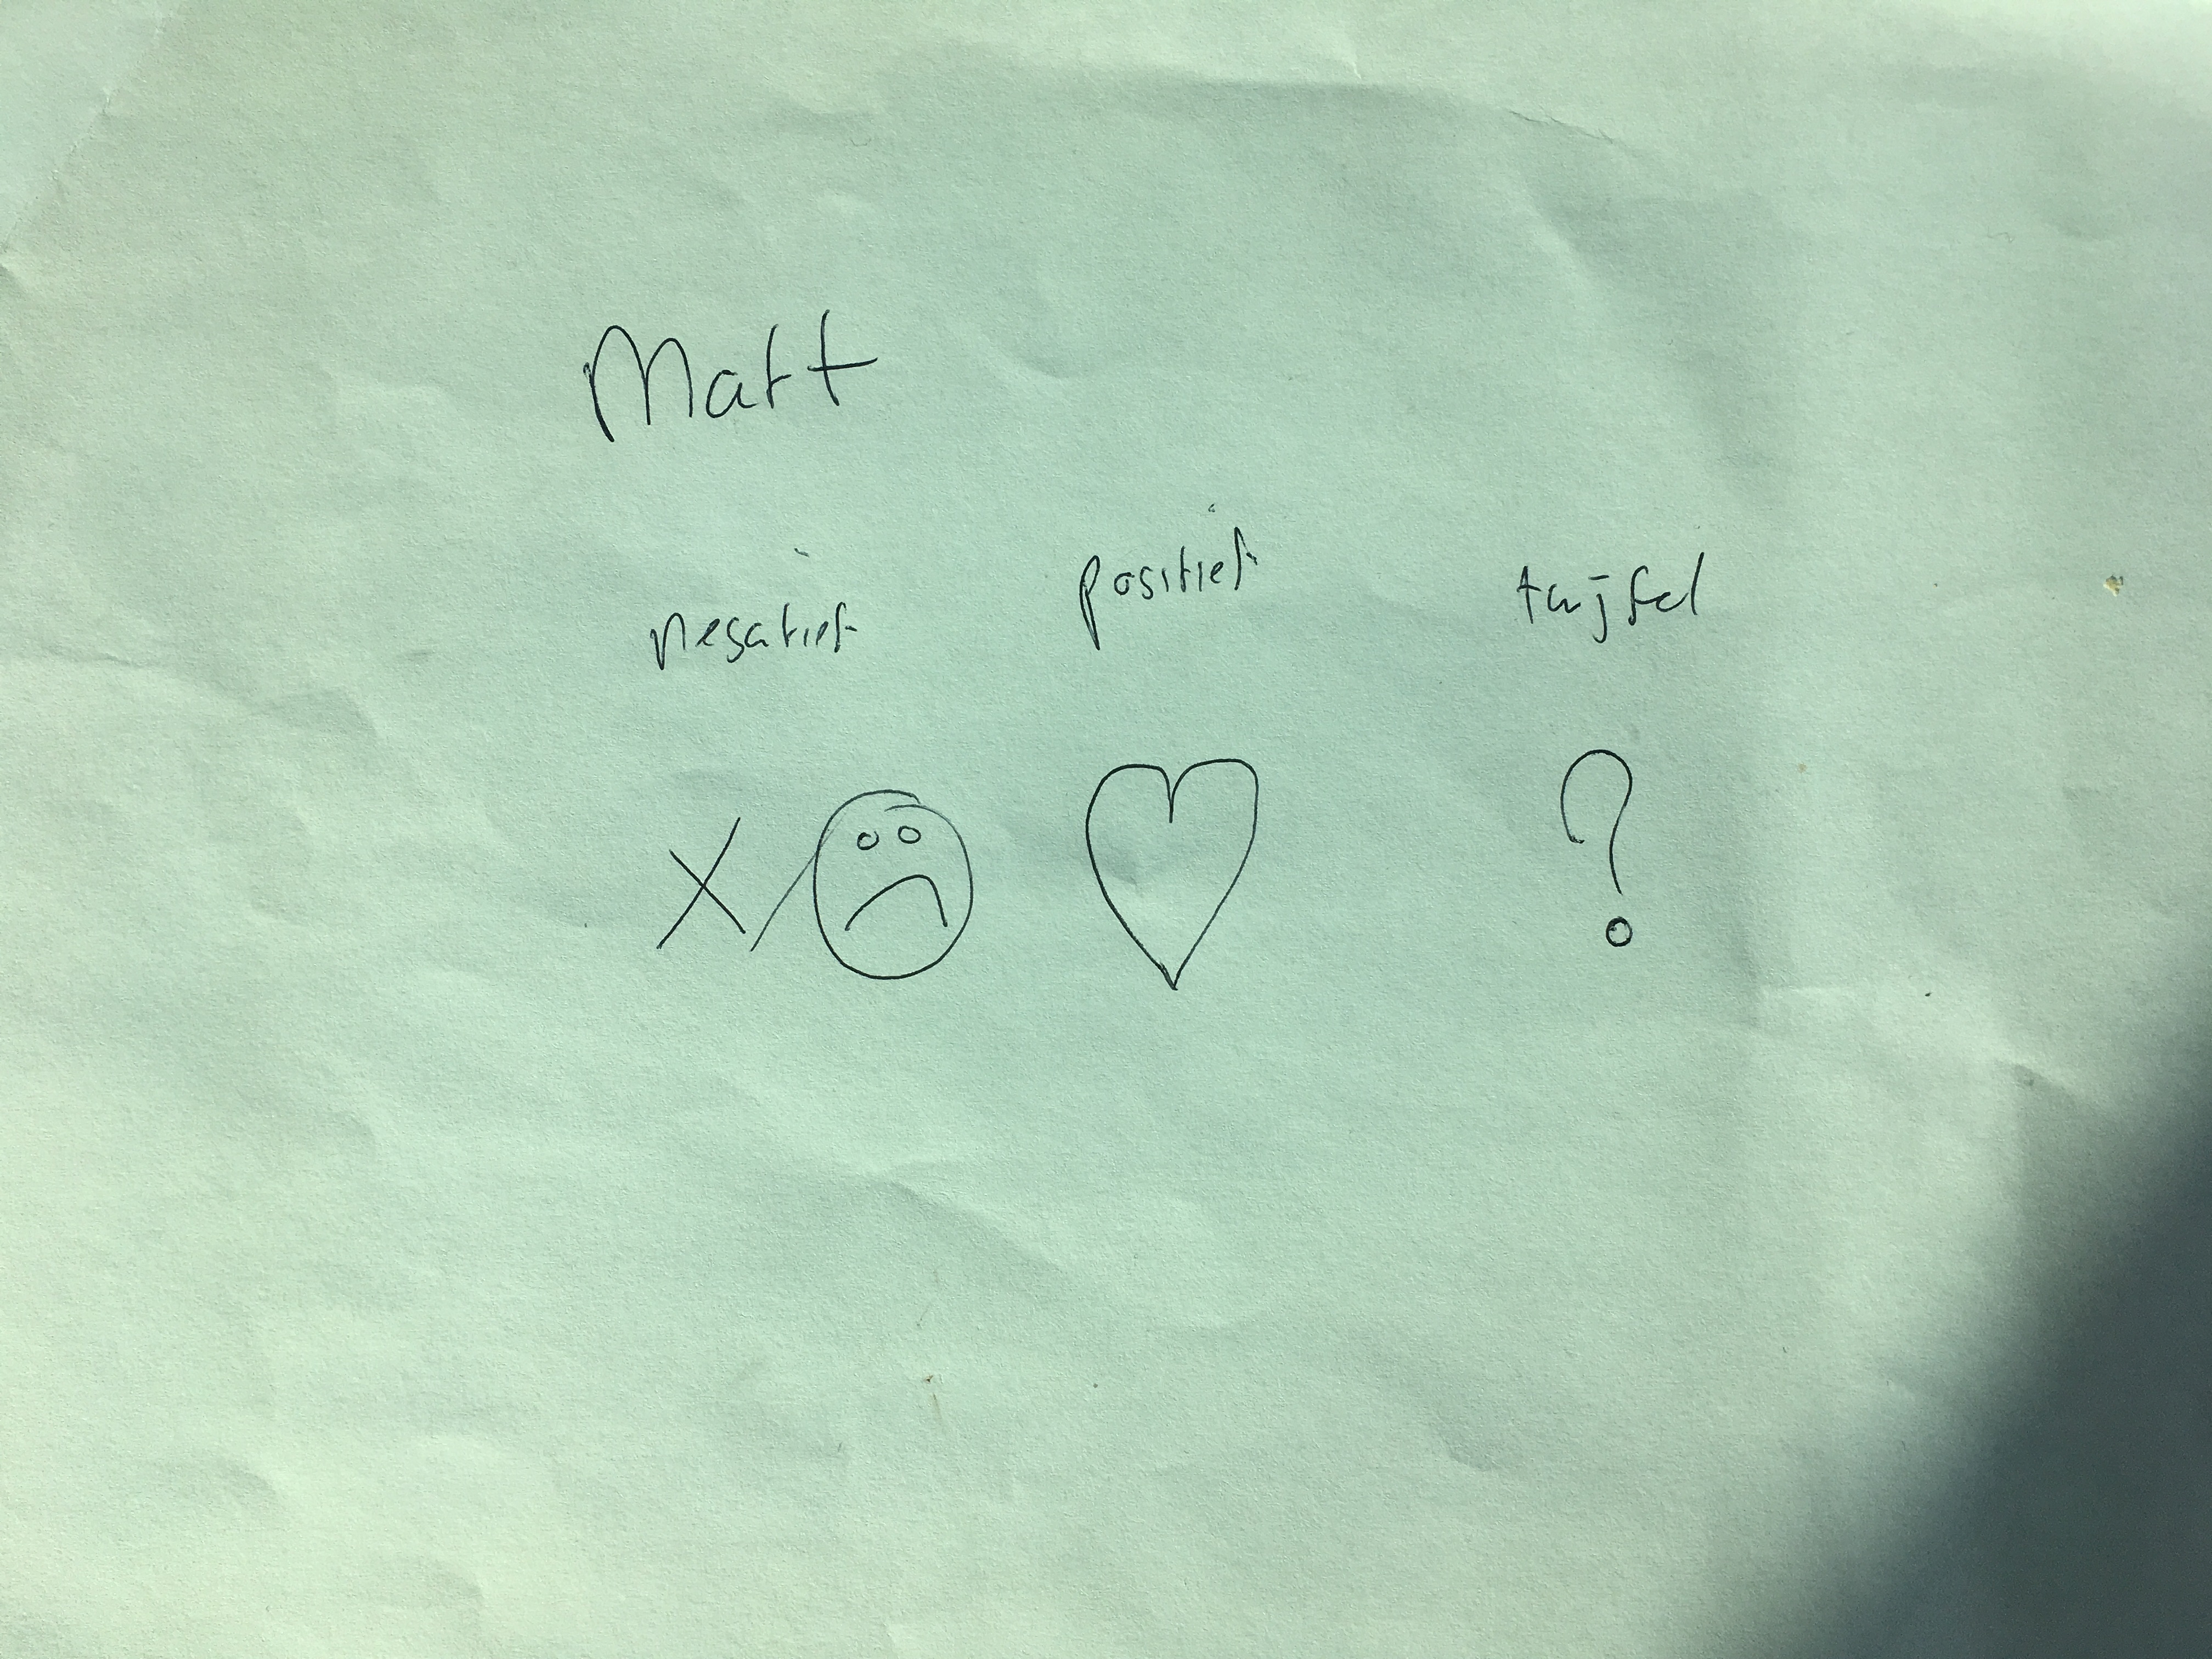 Matt
negatief positief twijfel
X/
?